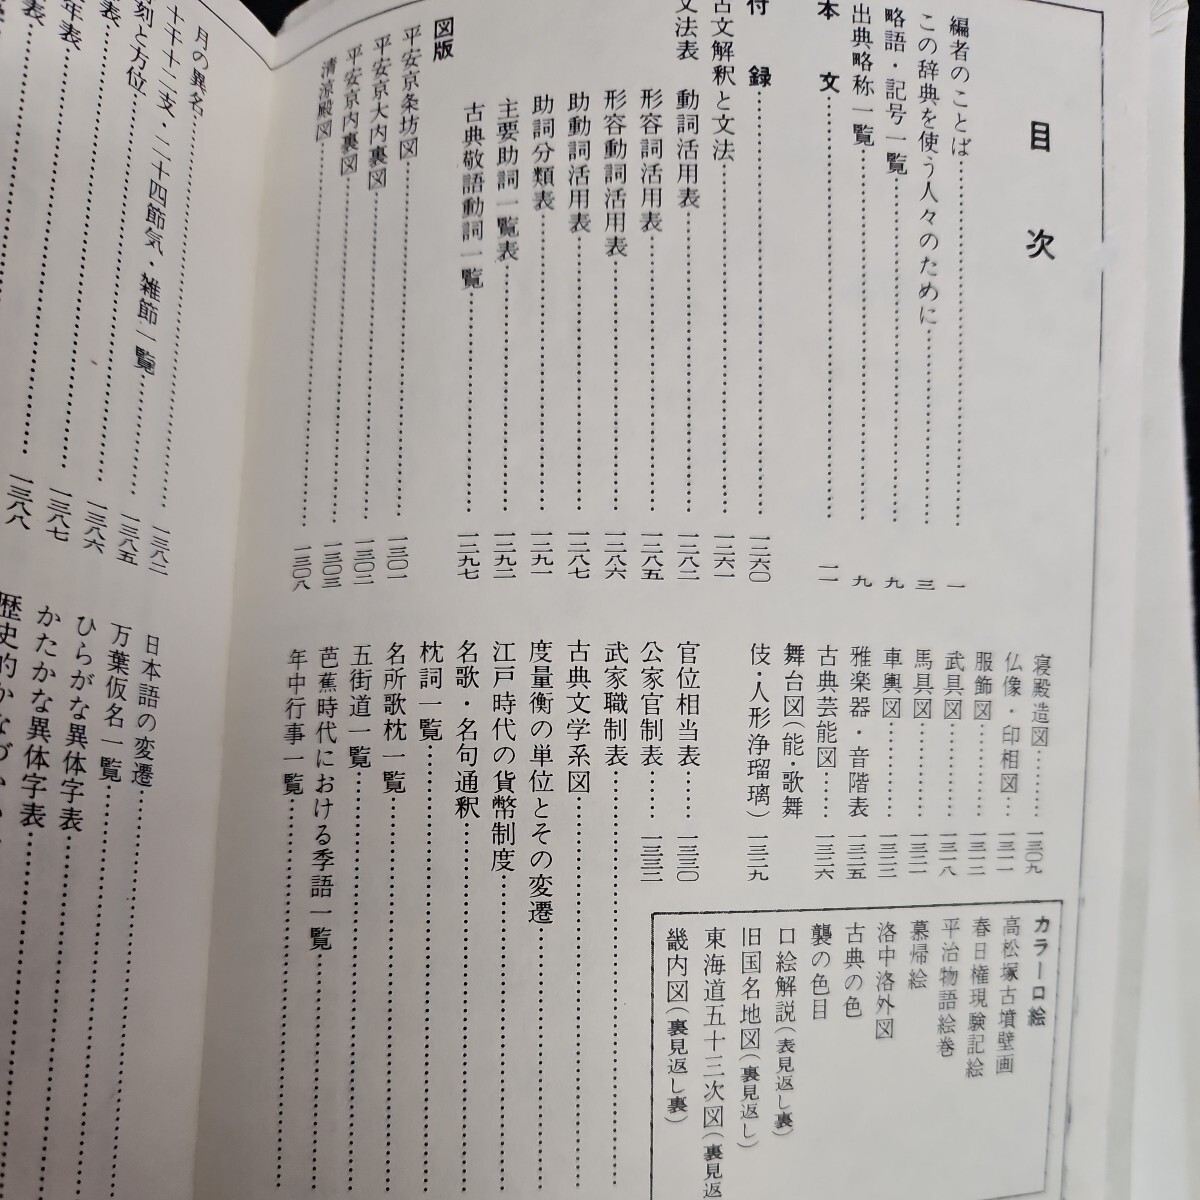 目次
編者のことば……一
この辞典を使う人々のために……三
略語・記号一覧……九
出典略称一覧……九
本文……一一
付録……一二六〇
古文解釈と文法……一二六一
文法表 動詞活用表……一二八二
形容詞活用表……一二八五
形容動詞活用表……一二八六
助動詞活用表……一二八七
助詞分類表……一二九一
主要助詞一覧表……一二九二
古典敬語動詞一覧……一二九七
図版
平安京条坊図……一三〇一
平安京大内裏図……一三〇二
平安京内裏図……一三〇三
清涼殿図……一三〇八
寝殿造図……一三〇九
仏像・印相図……一三一一
服飾図……一三一二
武具図……一三一八
馬具図……一三二一
車輿図……一三二三
雅楽器・音階表……一三二五
古典芸能図……一三二六
舞台図(能・歌舞
伎・人形浄瑠璃)……一三二九
官位相当表……一三三〇
公家官制表……一三三三
武家職制表……
古典文学系図……
度量衡の単位とその変遷……
江戸時代の貨幣制度……
名歌・名句通釈……
枕詞一覧……
名所歌枕一覧……
五街道一覧……
芭蕉時代における季語一覧……
年中行事一覧……
カラー口絵
高松塚古墳壁画
春日権現験記絵
平治物語絵巻
慕帰絵
洛中洛外図
古典の色
襲の色目
口絵解説(表見返し裏)
旧国名地図(裏見返し)
東海道五十三次図(裏見返
畿内図(裏見返し裏)
月の異名……一三八二
十干十二支・二十四節気・雑節一覧……一三八五
刻と方位……一三八六
表……一三八七
年表……一三八八
表
日本語の変遷……
万葉仮名一覧……
ひらがな異体字表……
かたかな異体字表……
歴史的かなづかい